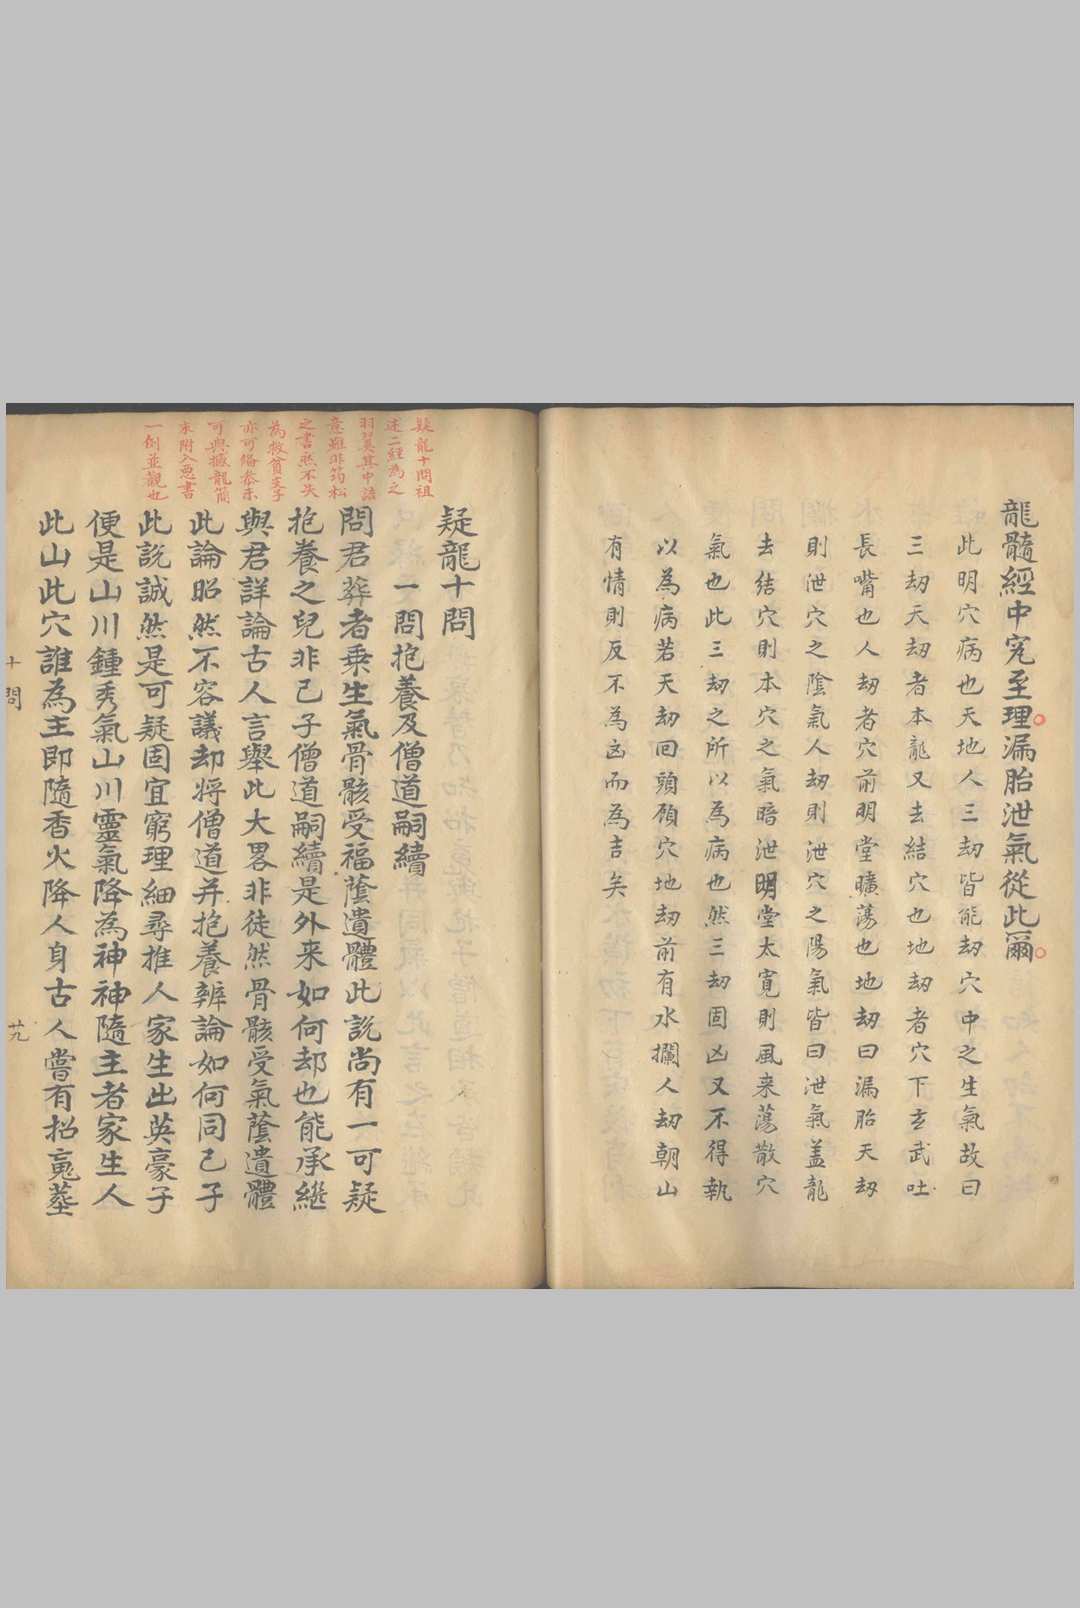 龍髓經中究至理漏胎泄氣從此爾
此明穴病也天地人三刼皆能刼穴中之生氣故曰
三刼天刼者本龍又去結穴也地刼者穴下玄武吐
長嘴也人刼者穴前明堂曠蕩也地刼曰漏胎天刼
則泄穴之陰氣人刼則泄穴之陽氣皆曰泄氣盖龍
去結穴則本穴之氣暗泄明堂太寬則風来蕩散穴
氣也此三刼之所以為病也然三刼固凶又不得執
以為病若天刼回頭顧穴地刼前有水攔人刼朝山
有情則反不為凶而為吉矣
疑龍十問祖
述二經為之
羽翼其中語
意雖非筠松
之書然不失
為救貧支子
亦可備叅未
可與撼龍簡
末附入惡書
一例並觀也
疑龍十問
一問抱養及僧道嗣續
問君葬者乗生氣骨骸受福蔭遺體此說尚有一可疑
抱養之兒非己子僧道嗣續是外来如何却也能承継
與君詳論古人言舉此大畧非徒然骨骸受氣蔭遺體
此論昭然不容議却將僧道并抱養辨論如何同己子
此說誠然是可疑固宜窮理細尋推人家生出英豪子
便是山川鍾秀氣山川靈氣降為神神隨主者家生人
此山此穴誰為主即隨香火降人身古人嘗有招䰟塟
十問
廿九